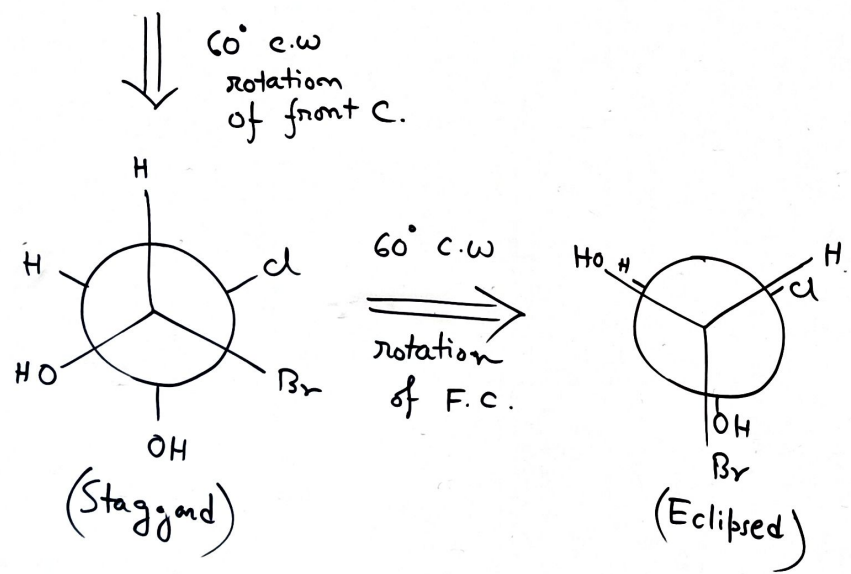 60° c.w
rotation
of front C.
H
H
Cl
HO
Br
OH
(Staggard)
60° c.w
rotation
of F.C.
Ho
H
H
Cl
OH
Br
(Eclipsed)